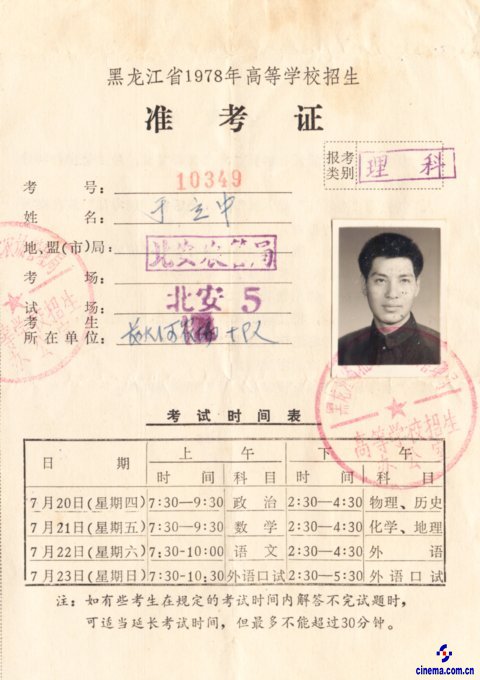 黑龙江省1978年高等学校招生
准考证
报考类别 理科
考号: 10349
姓名: 于立中
地、盟(市)局: 北安农管局
考场:
试场: 北安 5
考生所在单位:
高等学校招生
考试时间表
日期 上午 下午
时间 科目 时间 科目
7月20日(星期四) 7:30—9:30 政治 2:30—4:30 物理、历史
7月21日(星期五) 7:30—9:30 数学 2:30—4:30 化学、地理
7月22日(星期六) 7:30-10:00 语文 2:30—4:30 外语
7月23日(星期日) 7:30-10:30 外语口试 2:30—5:30 外语口试
注: 如有些考生在规定的考试时间内解答不完试题时,
可适当延长考试时间,但最多不能超过30分钟。
cinema.com.cn